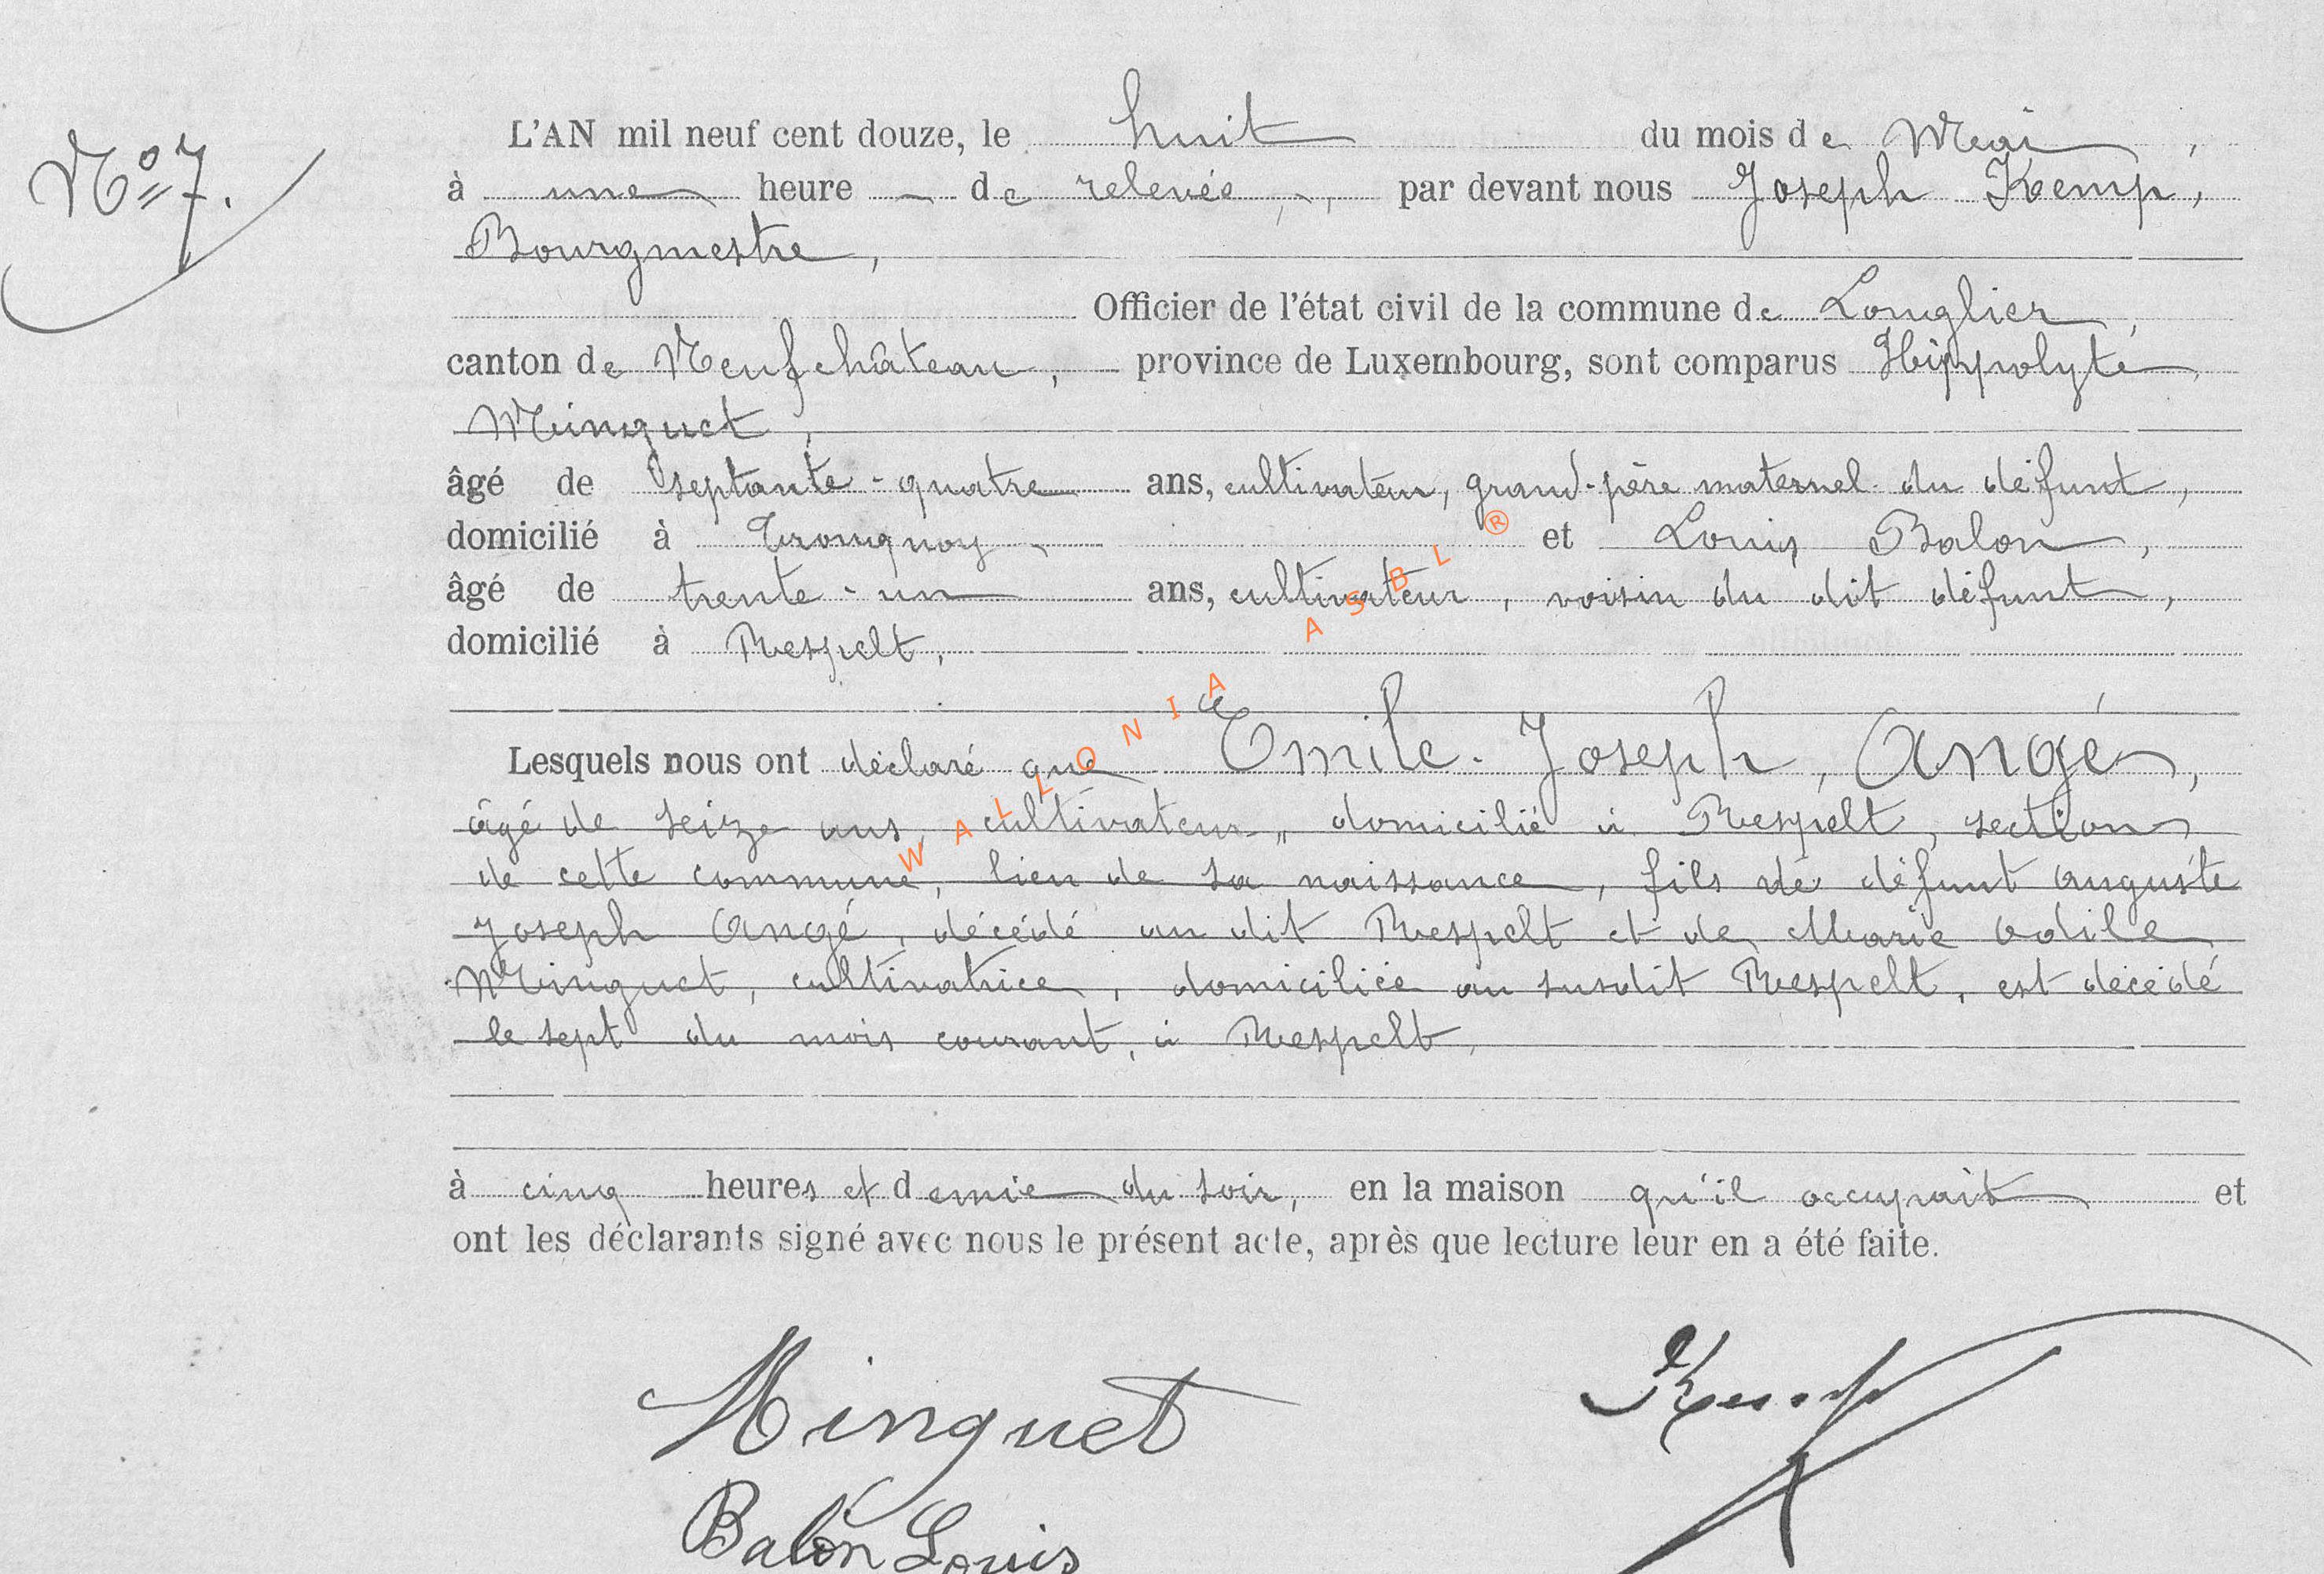 N° 7.
L'AN mil neuf cent douze, le huit du mois de Mai,
à une heure de relevée, par devant nous Joseph Kemp,
Bourgmestre,
Officier de l'état civil de la commune de Longlier,
canton de Neufchâteau, province de Luxembourg, sont comparus Hippolyte
Minguet,
âgé de septante-quatre ans, cultivateur, grand-père maternel du défunt,
domicilié à Tronquoy et Louis Balon,
âgé de trente-un ans, cultivateur, voisin du dit défunt,
domicilié à Respelt,
Lesquels nous ont déclaré que Emile-Joseph, Angé,
âgé de seize ans, cultivateur, domicilié à Respelt, section
de cette commune, lieu de sa naissance, fils de défunt Auguste
Joseph Angé, décédé au dit Respelt et de Marie Odile
Minguet, cultivatrice, domiciliée au susdit Respelt, est décédé
le sept du mois courant, à Respelt,
à cinq heures et demie du soir, en la maison qu'il occupait et
ont les déclarants signé avec nous le présent acte, après que lecture leur en a été faite.
Minguet
Kemp
Balon Louis
WALLONIA ASBL ®